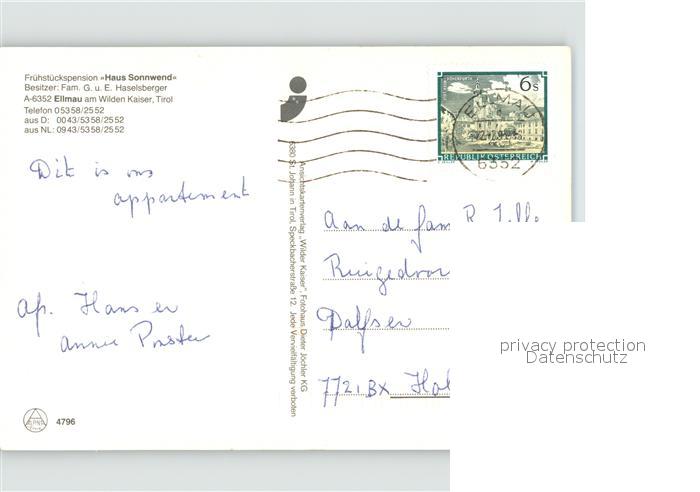 Frühstückspension »Haus Sonnwend«
Besitzer: Fam. G. u. E. Haselsberger
A-6352 Ellmau am Wilden Kaiser, Tirol
Telefon 05358/2552
aus D: 0043/5358/2552
aus NL: 0943/5358/2552
Dit is ons
appartement
ap. Hans en
annie
4796
Ansichtskartenverlag „Wilder Kaiser“, Fotohaus Dieter Jöchler KG
6380 St. Johann in Tirol, Speckbacherstraße 12, Jede Vervielfältigung verboten
6s
REPUBLIK ÖSTERREICH
ELLMAU
6352
Aan de fam
Dalfsen
7721BX
privacy protection
Datenschutz